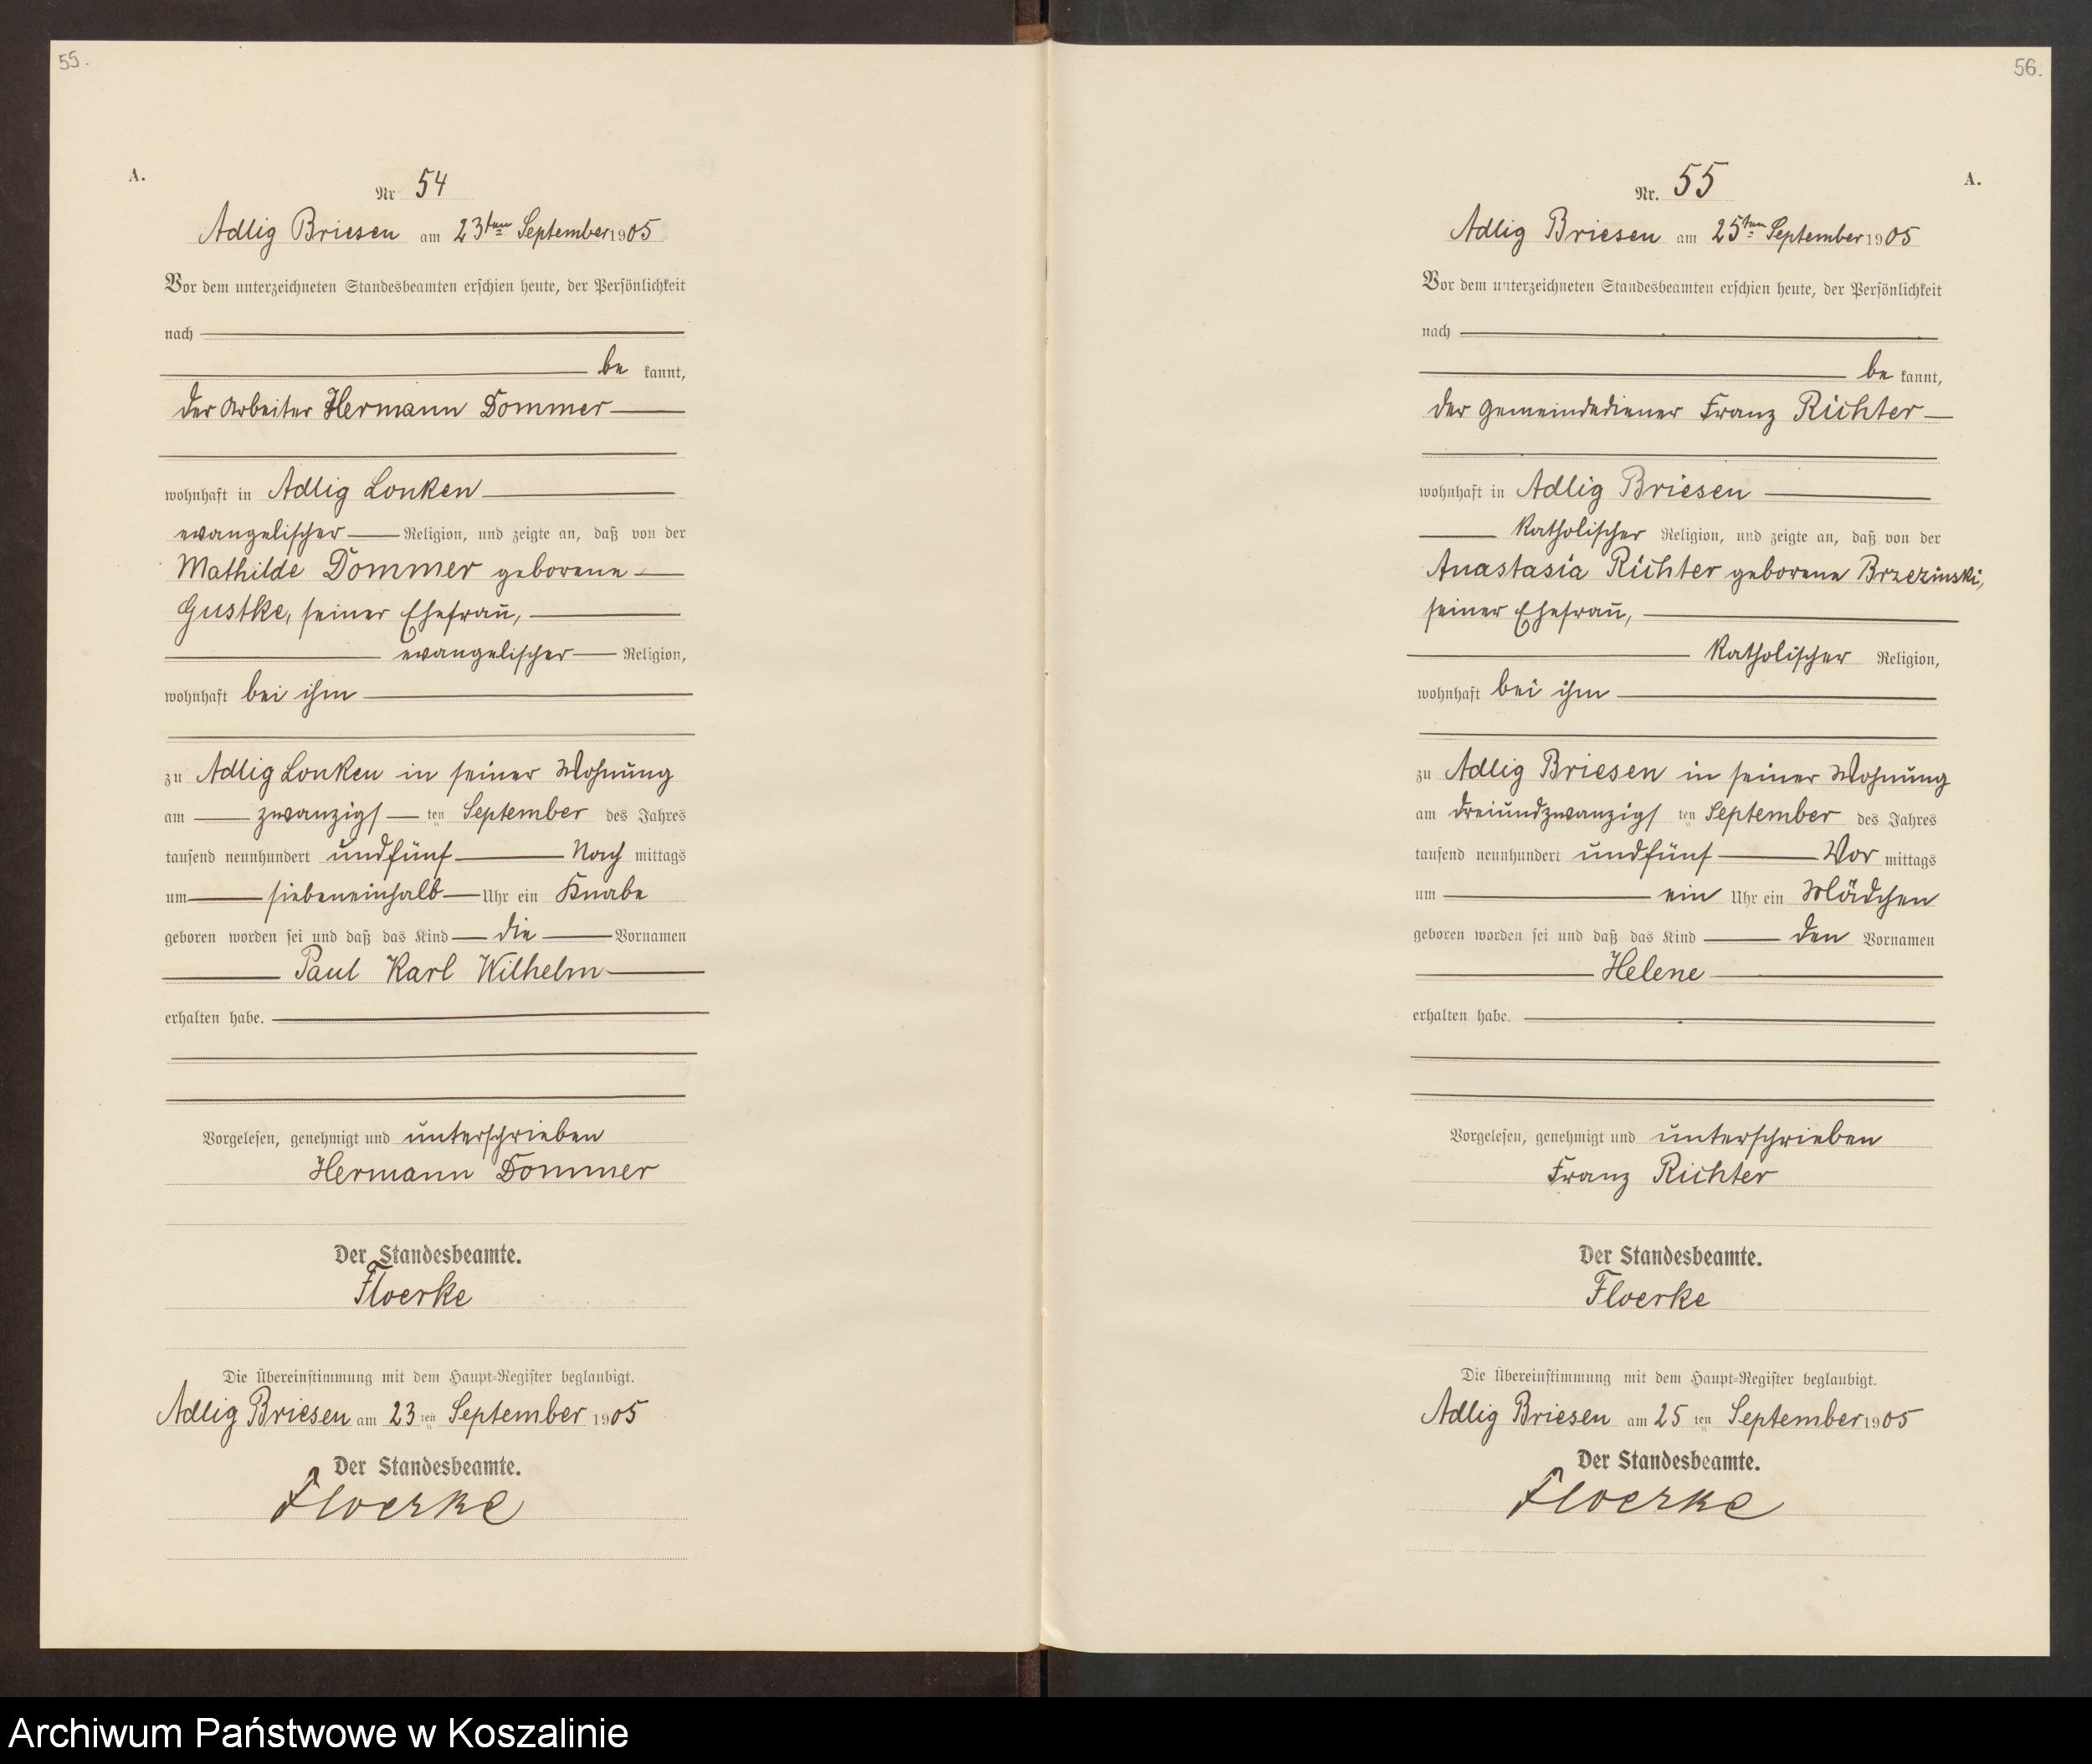 55.
A.
Nr 54
Adlig Briesen am 23ten September 1905
Vor dem unterzeichneten Standesbeamten erschien heute, der Persönlichkeit
nach
be kannt,
der Arbeiter Hermann Dommer
wohnhaft in Adlig Lonken
evangelischer Religion, und zeigte an, daß von der
Mathilde Dommer geborene
Gustke, seiner Ehefrau,
evangelischer Religion,
wohnhaft bei ihm
zu Adlig Lonken in seiner Wohnung
am zwanzigs ten September des Jahres
tausend neunhundert undfünf Nach mittags
um siebeneinhalb Uhr ein Knabe
geboren worden sei und daß das Kind die Vornamen
Paul Karl Wilhelm
erhalten habe.
Vorgelesen, genehmigt und unterschrieben
Hermann Dommer
Der Standesbeamte.
Floerke
Die Übereinstimmung mit dem Haupt-Register beglaubigt.
Adlig Briesen am 23 ten September 1905
Der Standesbeamte.
Floerke
56.
A.
Nr. 55
Adlig Briesen am 25ten September 1905
Vor dem unterzeichneten Standesbeamten erschien heute, der Persönlichkeit
nach
be kannt,
der Gemeindediener Franz Richter
wohnhaft in Adlig Briesen
katholischer Religion, und zeigte an, daß von der
Anastasia Richter geborene Brzezinski,
seiner Ehefrau,
katholischer Religion,
wohnhaft bei ihm
zu Adlig Briesen in seiner Wohnung
am dreiundzwanzigs ten September des Jahres
tausend neunhundert undfünf Vor mittags
um ein Uhr ein Mädchen
geboren worden sei und daß das Kind den Vornamen
Helene
erhalten habe.
Vorgelesen, genehmigt und unterschrieben
Franz Richter
Der Standesbeamte.
Floerke
Die Übereinstimmung mit dem Haupt-Register beglaubigt.
Adlig Briesen am 25 ten September 1905
Der Standesbeamte.
Floerke
Archiwum Państwowe w Koszalinie